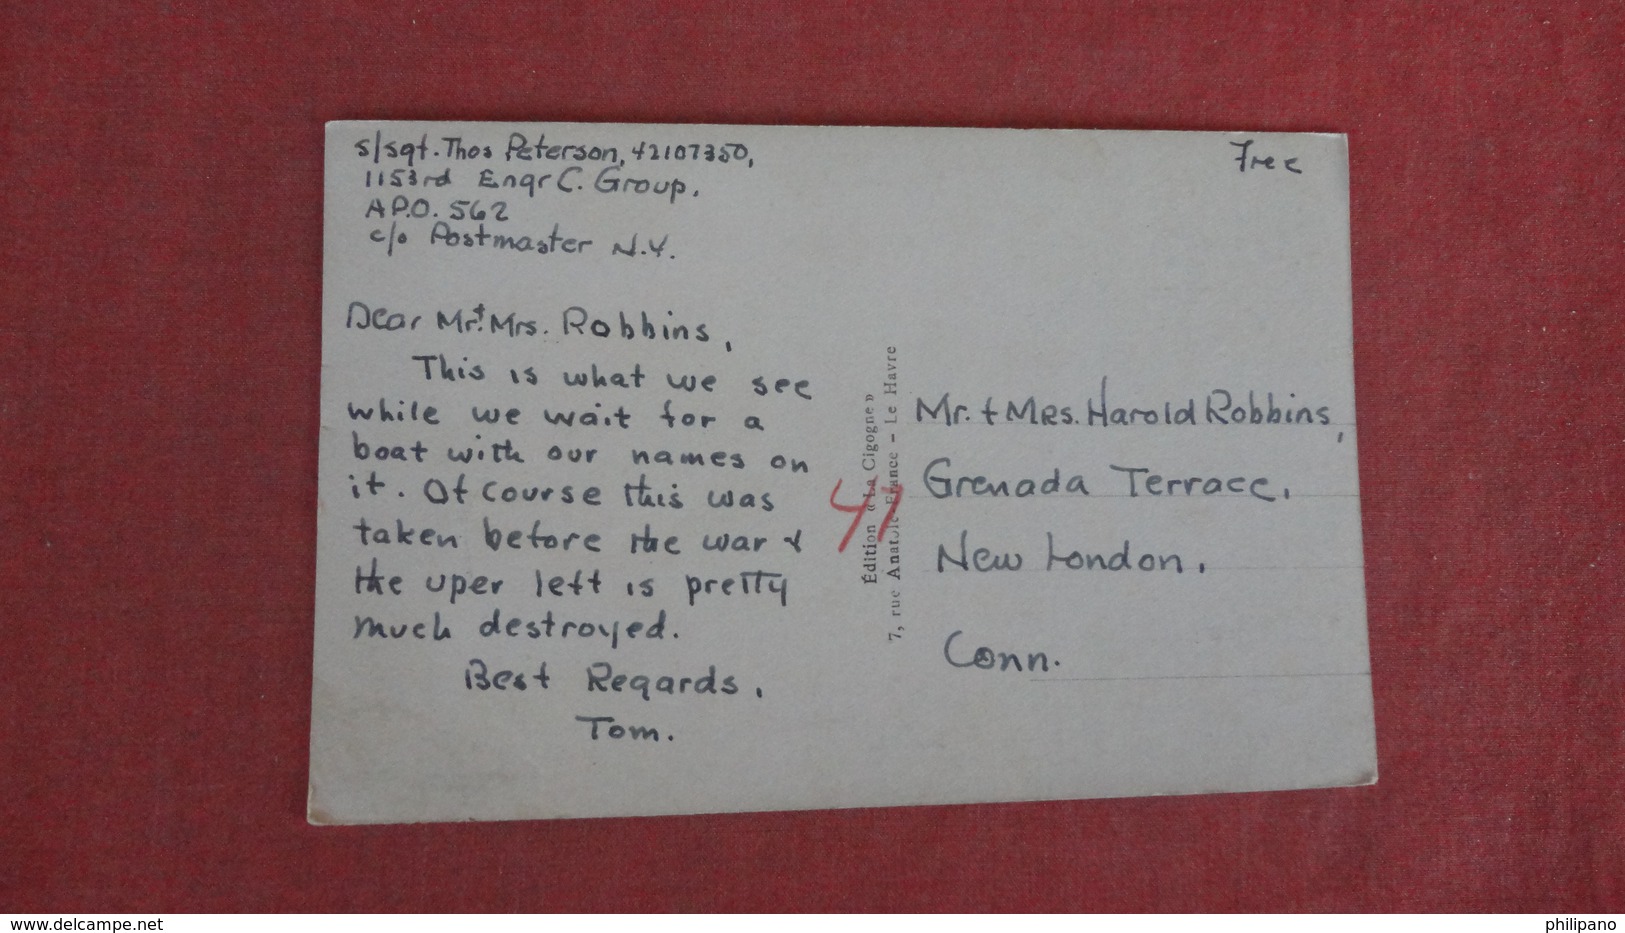 s/sgt. Thos Peterson, 42107350,
1153rd Engr C. Group.
A P.O. 562
c/o Postmaster N.Y.
Free
Dear Mr. + Mrs. Robbins,
This is what we see
while we wait for a
boat with our names on
it. Of course this was
taken before the war &
the uper left is pretty
much destroyed.
Best Regards,
Tom.
Édition « La Cigogne »
7, rue Anatole-France - Le Havre
Mr. + Mrs. Harold Robbins,
Grenada Terrace,
New London,
Conn.
delcampe.net
philipano